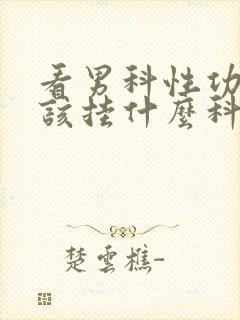 看男科性功
該挂什麼科
楚雲樵-